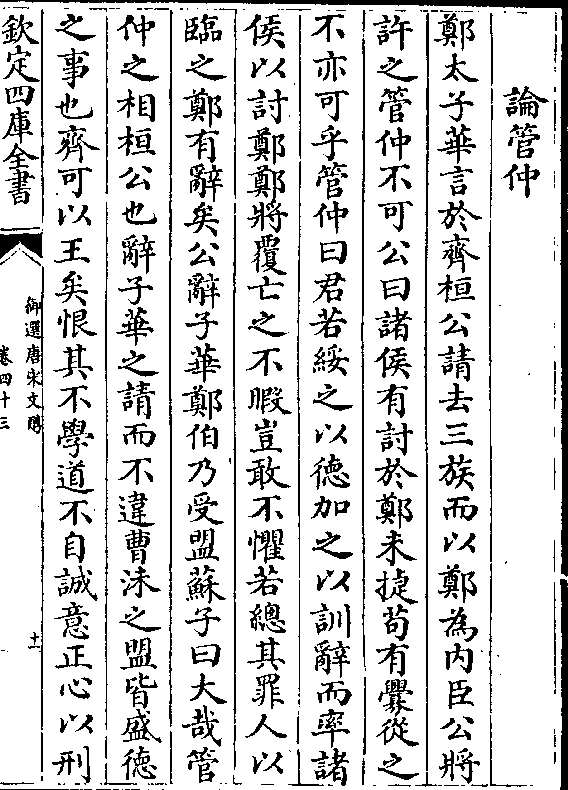 論管仲
鄭太子華言於齊桓公請去三族而以鄭為内臣公將
許之管仲不可公曰諸侯有討於鄭未捷苟有釁從之
不亦可乎管仲曰君若綏之以德加之以訓辭而率諸
侯以討鄭鄭將覆亡之不暇豈敢不懼若總其罪人以
臨之鄭有辭矣公辭子華鄭伯乃受盟蘇子曰大哉管
仲之相桓公也辭子華之請而不違曹沬之盟皆盛德
之事也齊可以王矣恨其不學道不自誠意正心以刑
欽定四庫全書
御選唐宋文醇
卷四十三
十一